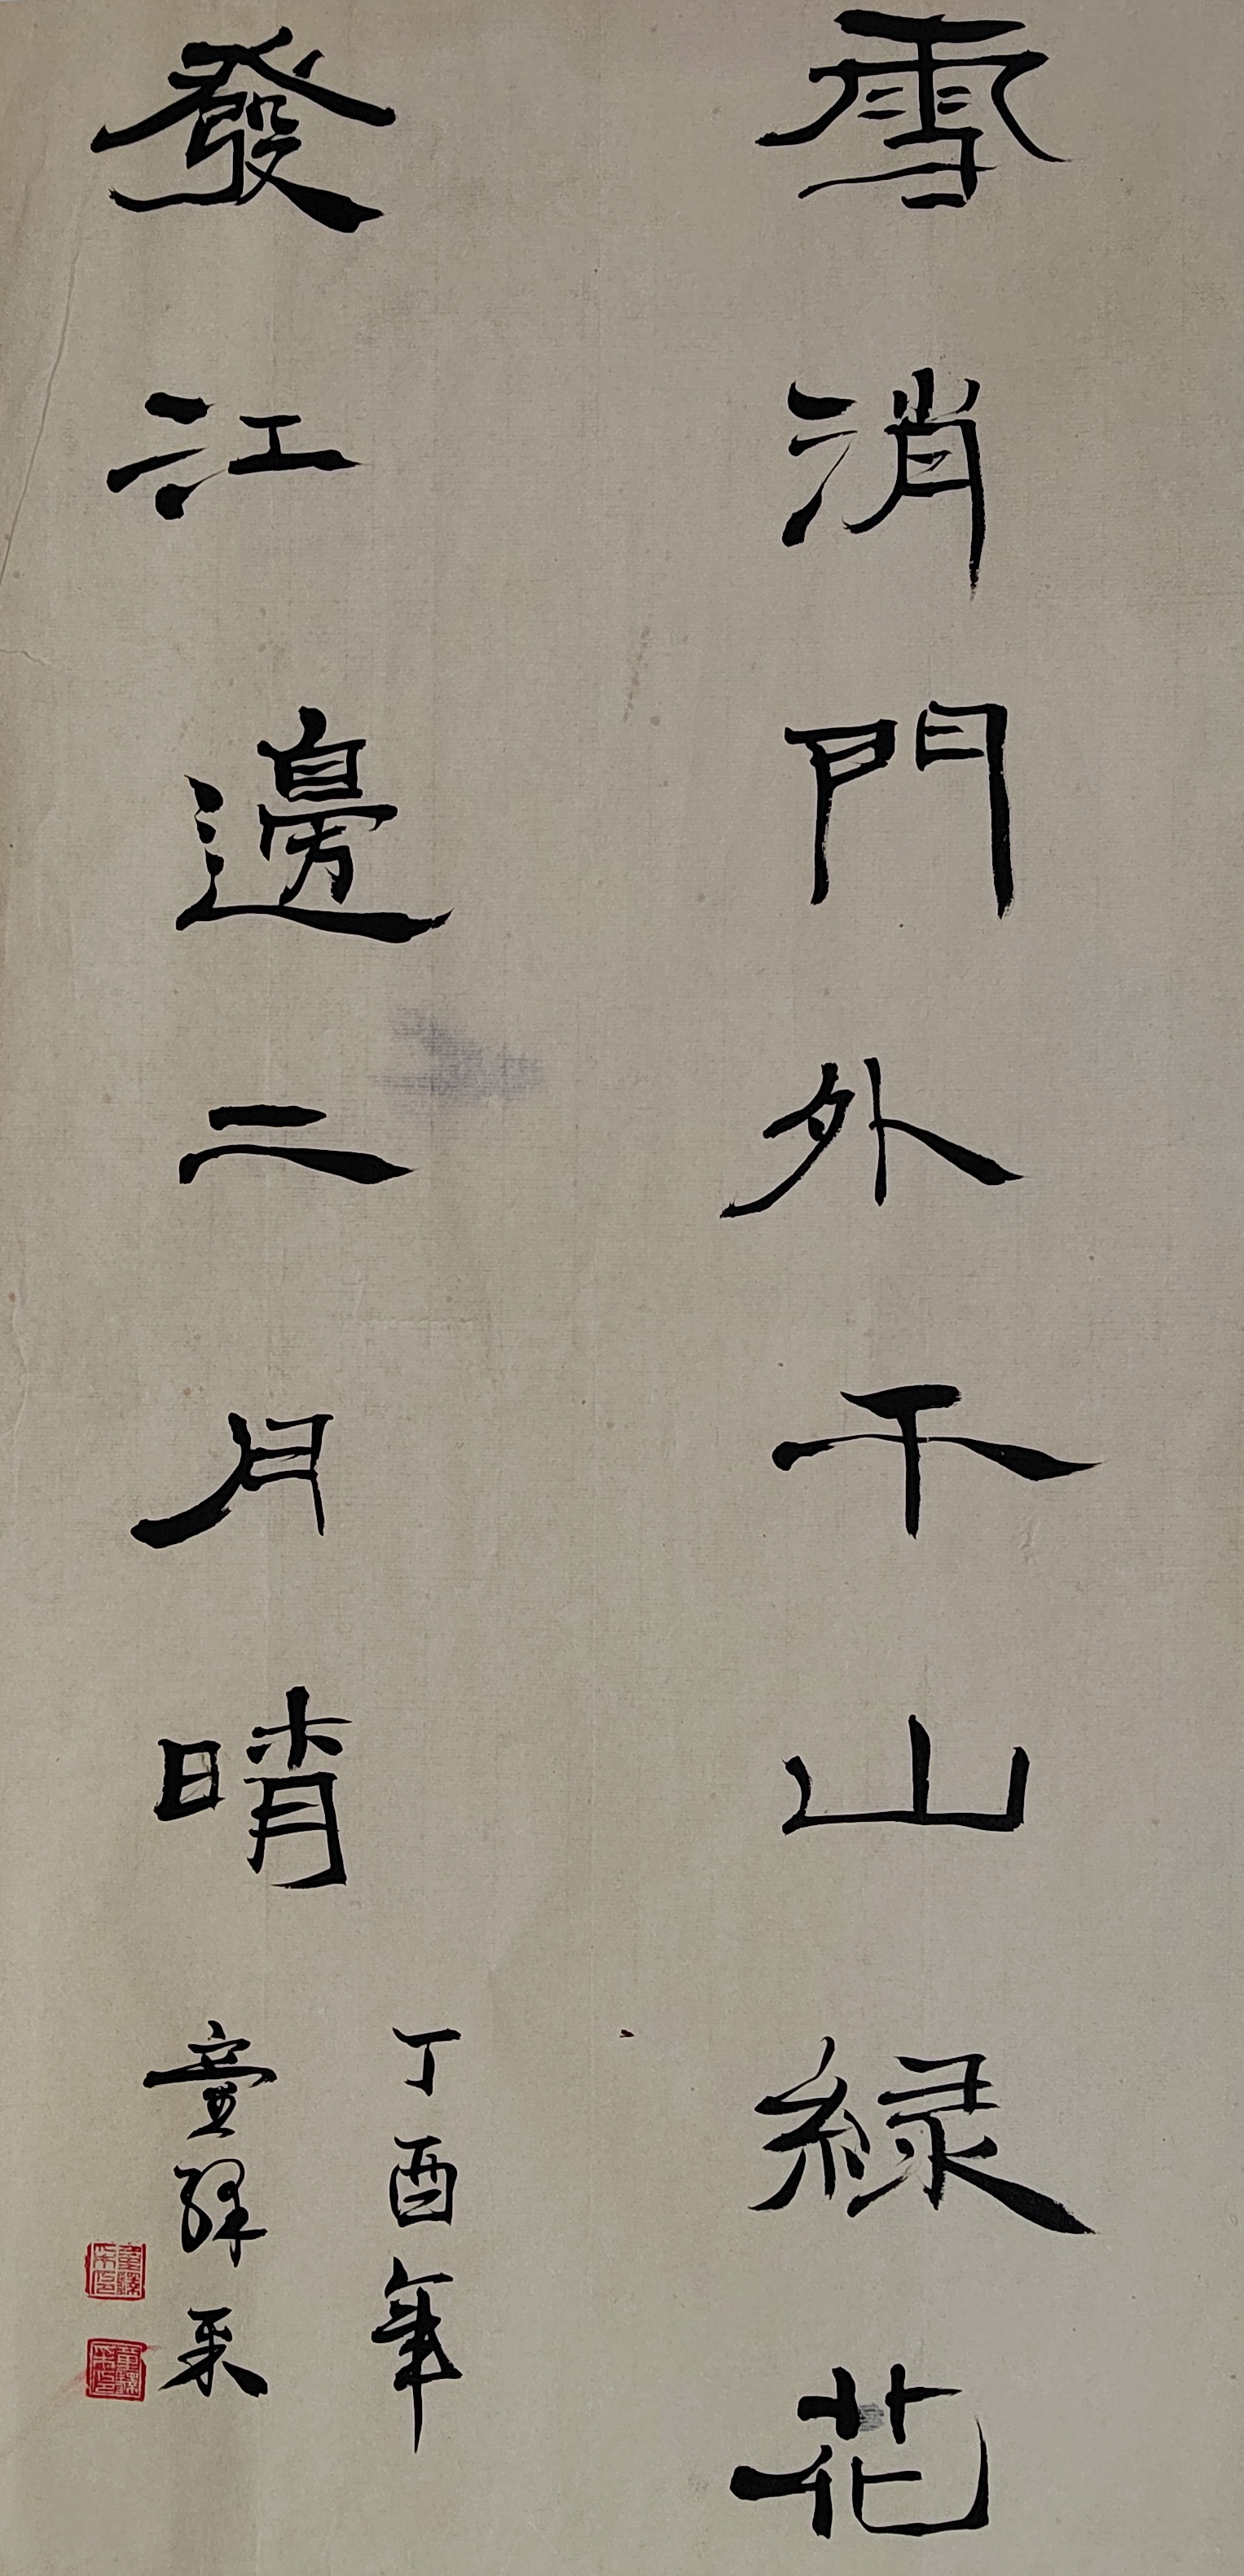 雪消門外千山綠花
發江邊二月晴
丁酉年
童繹采